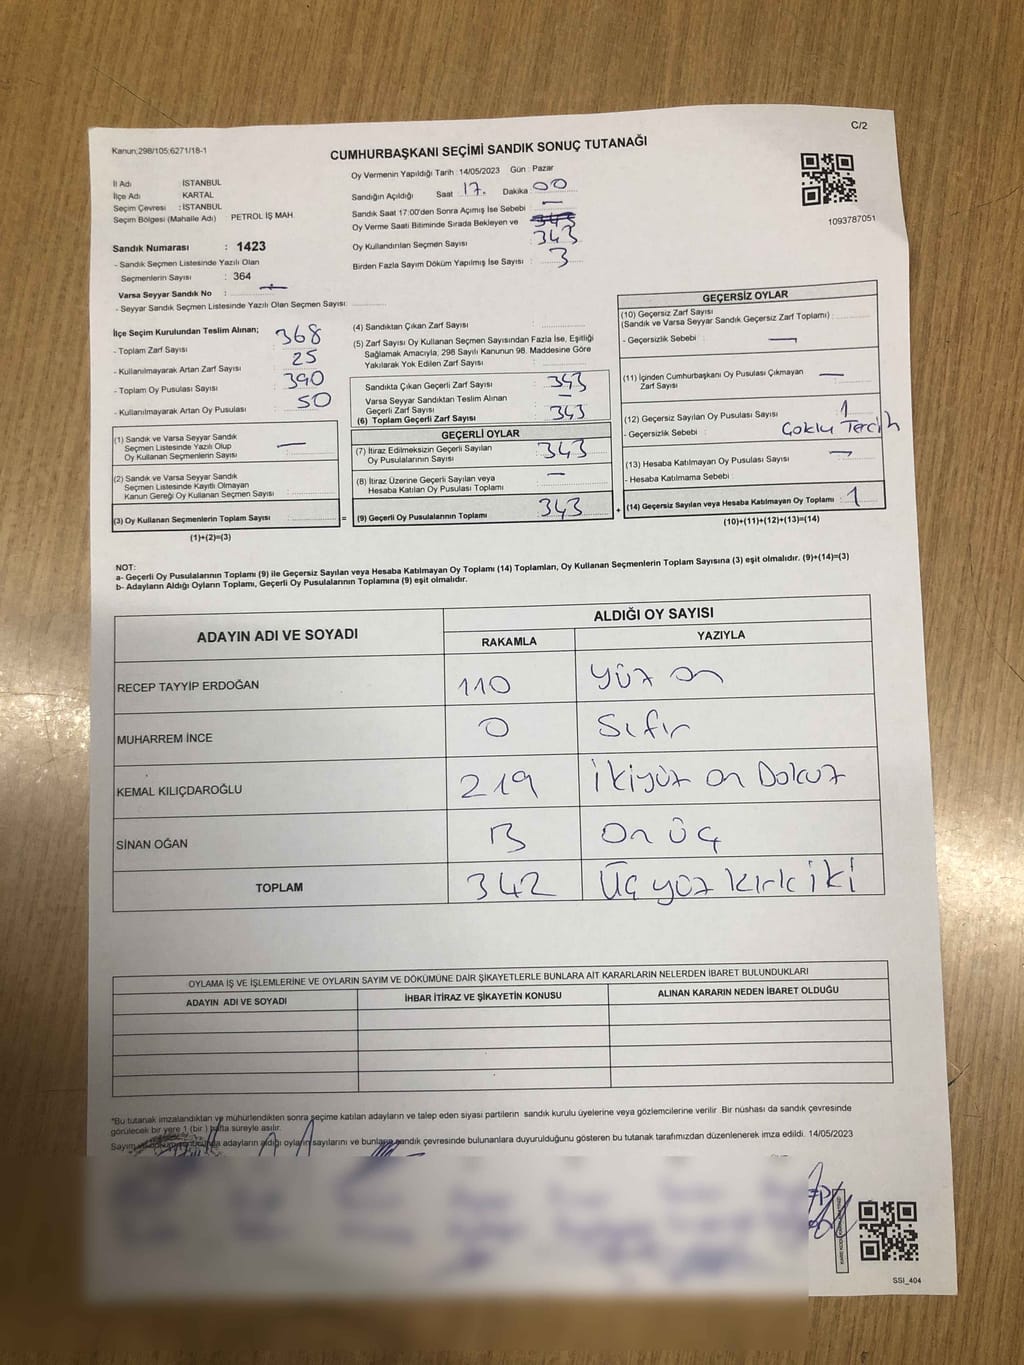 C/2
Kanun;298/105;6271/18-1
CUMHURBAŞKANI SEÇİMİ SANDIK SONUÇ TUTANAĞI
İl Adı İSTANBUL
İlçe Adı KARTAL
Seçim Çevresi : İSTANBUL
Seçim Bölgesi (Mahalle Adı) PETROL İŞ MAH.
Sandık Numarası : 1423
- Sandık Seçmen Listesinde Yazılı Olan
Seçmenlerin Sayısı : 364
Varsa Seyyar Sandık No :
- Seyyar Sandık Seçmen Listesinde Yazılı Olan Seçmen Sayısı:
Oy Vermenin Yapıldığı Tarih :14/05/2023 Gün : Pazar
Sandığın Açıldığı Saat 17. Dakika 00
Sandık Saat 17:00'den Sonra Açımış İse Sebebi
Oy Verme Saati Bitiminde Sırada Bekleyen ve
Oy Kullandırılan Seçmen Sayısı 343
Birden Fazla Sayım Döküm Yapılmış İse Sayısı : 3
1093787051
İlçe Seçim Kurulundan Teslim Alınan;
- Toplam Zarf Sayısı 368
- Kullanılmayarak Artan Zarf Sayısı 25
- Toplam Oy Pusulası Sayısı 390
- Kullanılmayarak Artan Oy Pusulası 50
(1) Sandık ve Varsa Seyyar Sandık
Seçmen Listesinde Yazılı Olup
Oy Kullanan Seçmenlerin Sayısı
(2) Sandık ve Varsa Seyyar Sandık
Seçmen Listesinde Kayıtlı Olmayan
Kanun Gereği Oy Kullanan Seçmen Sayısı
(3) Oy Kullanan Seçmenlerin Toplam Sayısı
(1)+(2)=(3)
(4) Sandıktan Çıkan Zarf Sayısı
(5) Zarf Sayısı Oy Kullanan Seçmen Sayısından Fazla İse, Eşitliği
Sağlamak Amacıyla, 298 Sayılı Kanunun 98. Maddesine Göre
Yakılarak Yok Edilen Zarf Sayısı
Sandıkta Çıkan Geçerli Zarf Sayısı 343
Varsa Seyyar Sandıktan Teslim Alınan
Geçerli Zarf Sayısı
(6) Toplam Geçerli Zarf Sayısı 343
GEÇERLİ OYLAR
(7) İtiraz Edilmeksizin Geçerli Sayılan
Oy Pusulalarının Sayısı 343
(8) İtiraz Üzerine Geçerli Sayılan veya
Hesaba Katılan Oy Pusulası Toplamı
= (9) Geçerli Oy Pusulalarının Toplamı 343
GEÇERSİZ OYLAR
(10) Geçersiz Zarf Sayısı
(Sandık ve Varsa Seyyar Sandık Geçersiz Zarf Toplamı) :
- Geçersizlik Sebebi :
(11) İçinden Cumhurbaşkanı Oy Pusulası Çıkmayan
Zarf Sayısı
(12) Geçersiz Sayılan Oy Pusulası Sayısı 1
- Geçersizlik Sebebi : Çoklu Tercih
(13) Hesaba Katılmayan Oy Pusulası Sayısı
- Hesaba Katılmama Sebebi :
+ (14) Geçersiz Sayılan veya Hesaba Katılmayan Oy Toplamı : 1
(10)+(11)+(12)+(13)=(14)
NOT:
a- Geçerli Oy Pusulalarının Toplamı (9) ile Geçersiz Sayılan veya Hesaba Katılmayan Oy Toplamı (14) Toplamları, Oy Kullanan Seçmenlerin Toplam Sayısına (3) eşit olmalıdır. (9)+(14)=(3)
b- Adayların Aldığı Oyların Toplamı, Geçerli Oy Pusulalarının Toplamına (9) eşit olmalıdır.
ADAYIN ADI VE SOYADI ALDIĞI OY SAYISI
RAKAMLA YAZIYLA
RECEP TAYYİP ERDOĞAN 110 Yüz on
MUHARREM İNCE 0 Sıfır
KEMAL KILIÇDAROĞLU 219 ikiyüz on Dokuz
SİNAN OĞAN 13 On üç
TOPLAM 342 Üç yüz kırk iki
OYLAMA İŞ VE İŞLEMLERİNE VE OYLARIN SAYIM VE DÖKÜMÜNE DAİR ŞİKAYETLERLE BUNLARA AİT KARARLARIN NELERDEN İBARET BULUNDUKLARI
ADAYIN ADI VE SOYADI İHBAR İTİRAZ VE ŞİKAYETİN KONUSU ALINAN KARARIN NEDEN İBARET OLDUĞU
*Bu tutanak imzalandıktan ve mühürlendikten sonra seçime katılan adayların ve talep eden siyasi partilerin sandık kurulu üyelerine veya gözlemcilerine verilir .Bir nüshası da sandık çevresinde
görülecek bir yere 1 (bir ) hafta süreyle asılır.
Sayım adayların aldığı oyların sayılarını ve bunların sandık çevresinde bulunanlara duyurulduğunu gösteren bu tutanak tarafımızdan düzenlenerek imza edildi. 14/05/2023
SSI_404